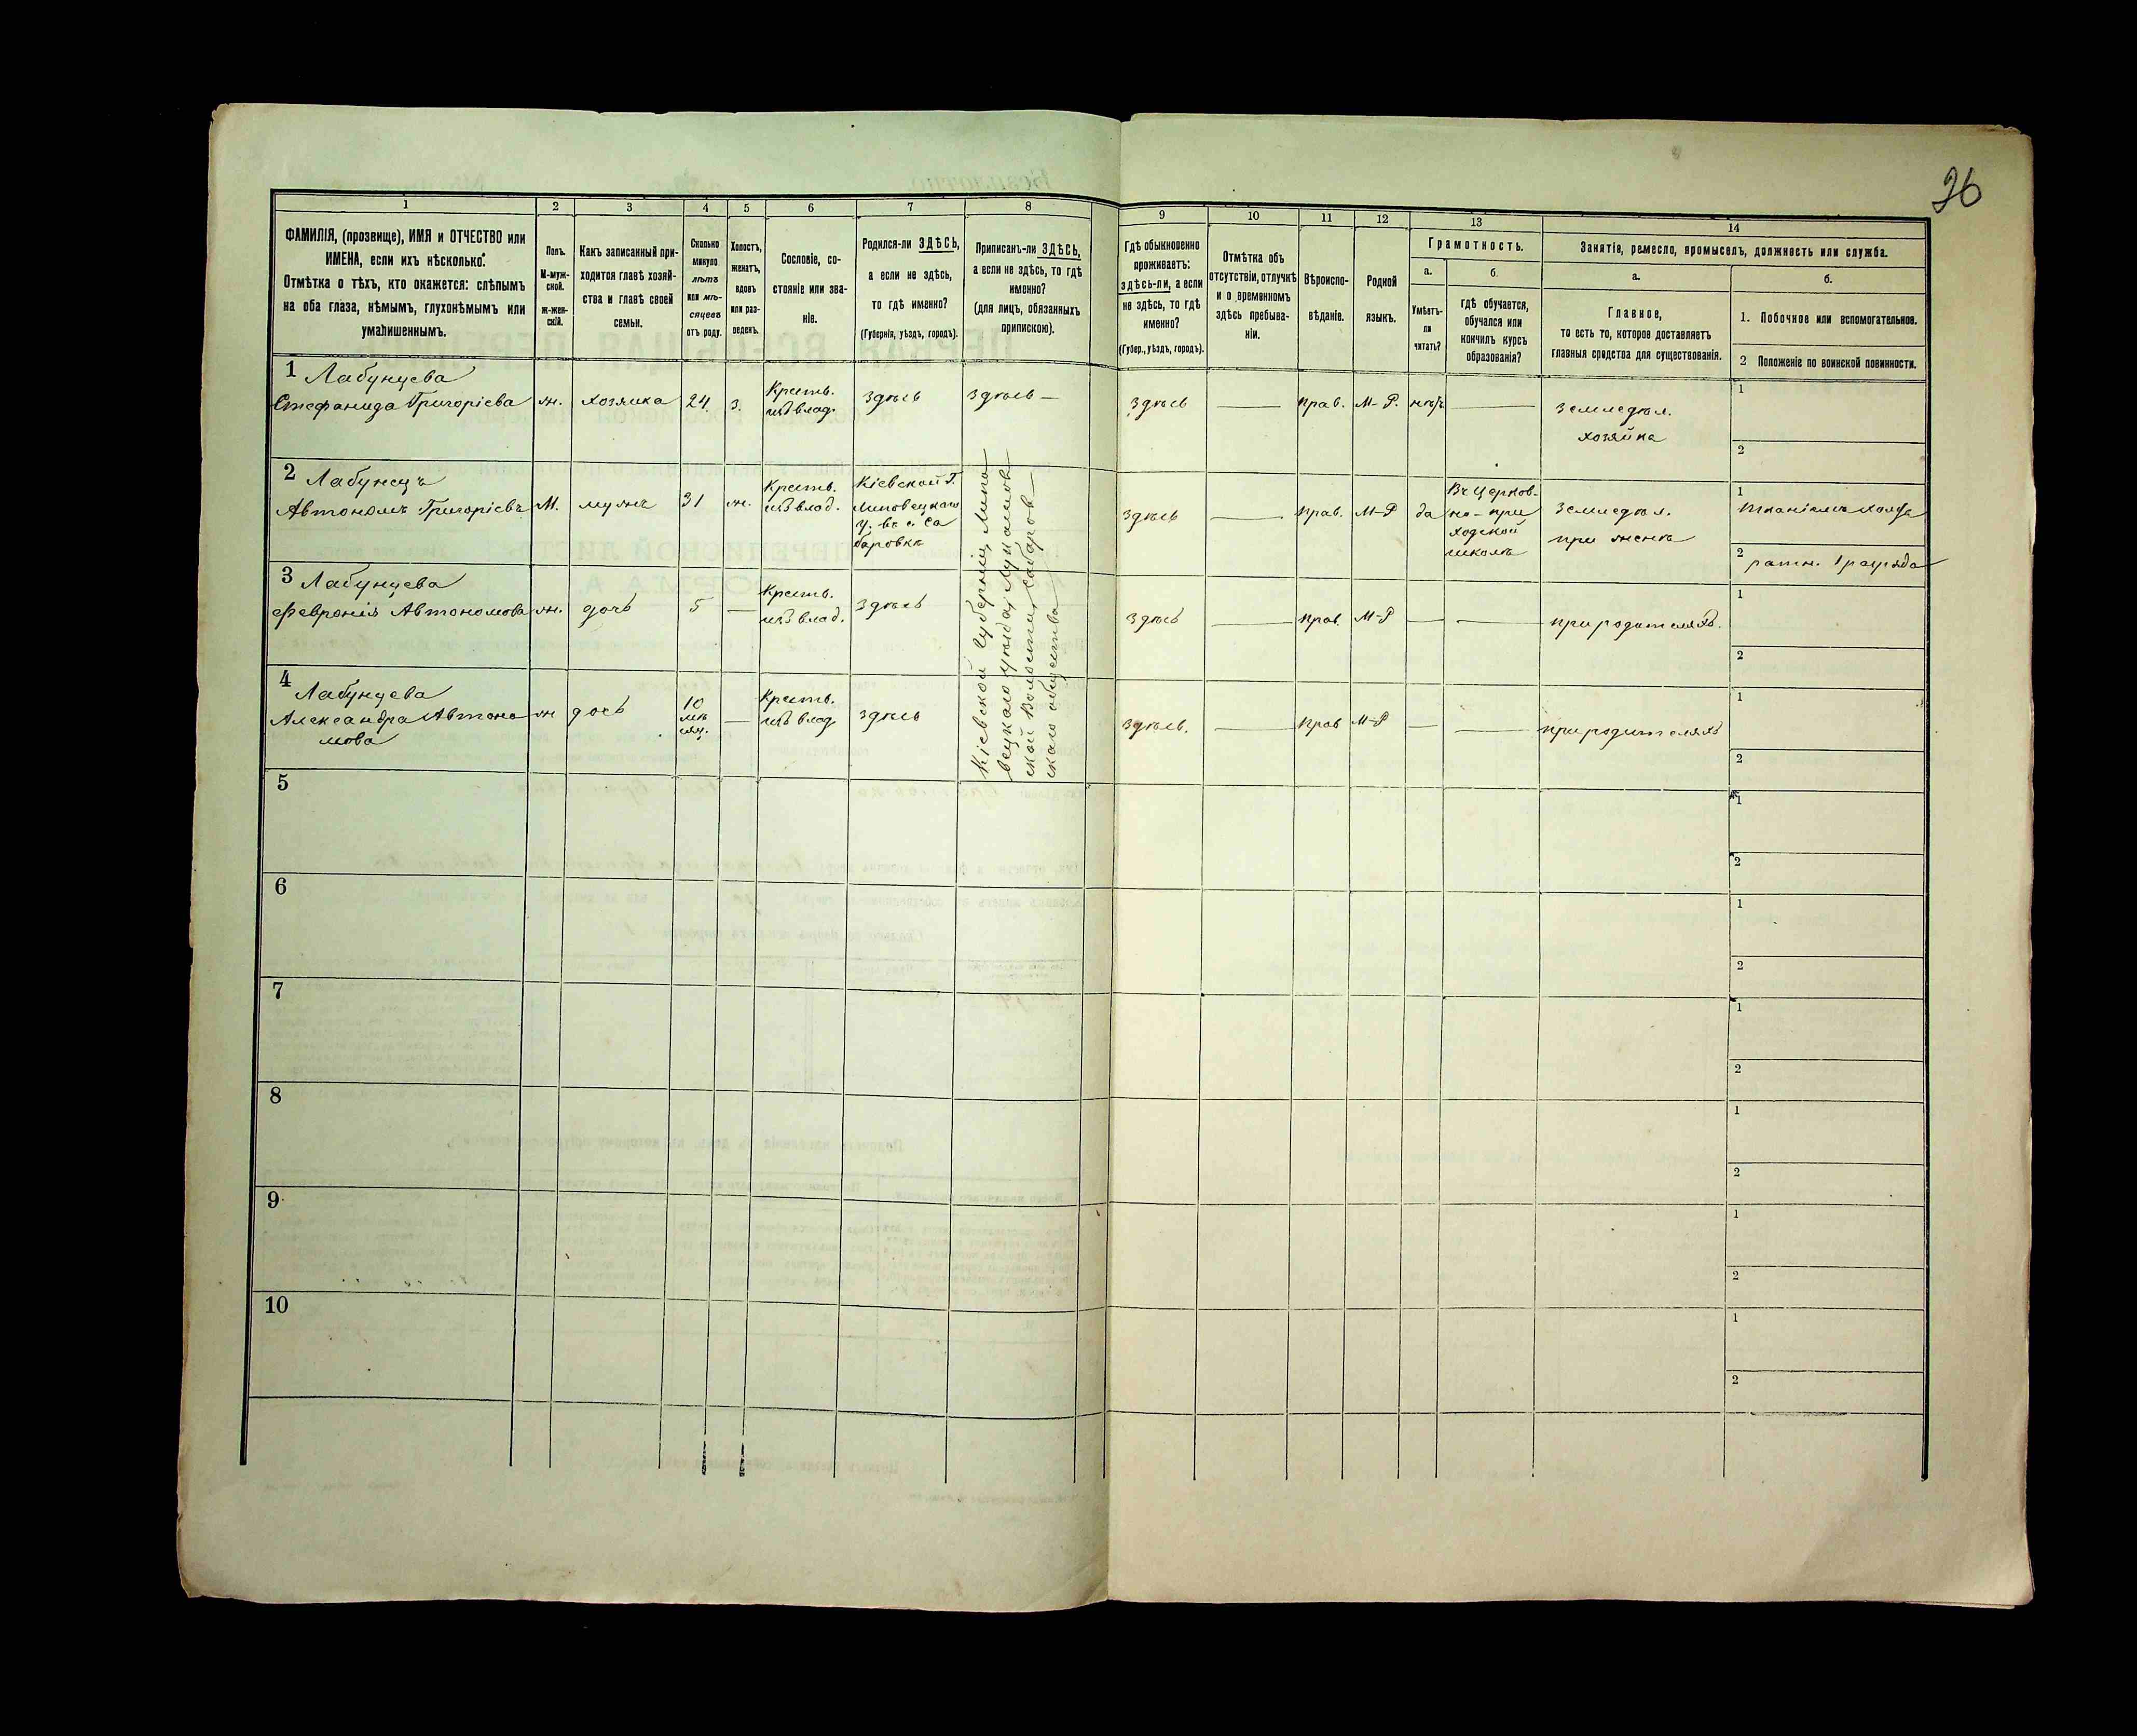 26
1
2
3
4
5
6
7
8
9
10
11
12
13
14
ФАМИЛІЯ, (прозвище), ИМЯ и ОТЧЕСТВО или
ИМЕНА, если ихъ нѣсколько.
Отмѣтка о тѣхъ, кто окажется: слѣпымъ
на оба глаза, нѣмымъ, глухонѣмымъ или
умалишеннымъ.
Полъ.
М-муж-
ской.
Ж-жен-
скій.
Какъ записанный при-
ходится главѣ хозяй-
ства и главѣ своей
семьи.
Сколько
минуло
лѣтъ
или мѣ-
сяцевъ
отъ роду.
Холостъ,
женатъ,
вдовъ
или раз-
веденъ.
Сословіе, со-
стояніе или зва-
ніе.
Родился-ли ЗДѢСЬ,
а если не здѣсь,
то гдѣ именно?
(Губернія, уѣздъ, городъ).
Приписанъ-ли ЗДѢСЬ,
а если не здѣсь, то гдѣ
именно?
(для лицъ, обязанныхъ
припискою).
Гдѣ обыкновенно
проживаетъ:
здѣсь-ли, а если
не здѣсь, то гдѣ
именно?
(Губер., уѣздъ, городъ).
Отмѣтка объ
отсутствіи, отлучкѣ
и о временномъ
здѣсь пребыва-
ніи.
Вѣроиспо-
вѣданіе.
Родной
языкъ.
Грамотность.
а.
Умѣетъ-
ли
читать?
б.
гдѣ обучается,
обучался или
кончилъ курсъ
образованія?
Занятіе, ремесло, промыселъ, должность или служба.
а.
Главное,
то есть то, которое доставляетъ
главныя средства для существованія.
б.
1. Побочное или вспомогательное.
2 Положеніе по воинской повинности.
1 Лабунцева
Стефанида Григорієва
ж.
хозяйка
24.
з.
Крестъ.
изъ влад.
здѣсь
здѣсь —
здѣсь
—
прав.
М-Р.
нѣтъ
—
земледѣл.
хозяйка
1
2
2 Лабунецъ
Автономъ Григоріевъ
М.
мужъ
31
ж.
Крестъ.
изъ влад.
Кіевской Г.
Липовецкаго
у. въ с. Са
баровкѣ
Кіевской Губерніи, Липо
вецкаго уѣзда,
ской Волости, Сабаров—
скаго общества
здѣсь
—
прав.
М-Р
да
Въ церков-
но-при
ходской
школѣ
земледѣл.
при женѣ
1
тканіемъ холста
2
ратн. 1 разряда
3 Лабунцева
Февронія Автономова
ж.
дочь
5
—
Крестъ.
изъ влад.
здѣсь
здѣсь
—
прав.
М-Р
—
—
при родителяхъ.
1
2
4 Лабунцева
Александра Автоно
мова
ж
дочь
10
мѣ
сяц.
—
Крестъ.
изъ влад.
здѣсь
здѣсь.
—
прав
М-Р
—
—
при родителяхъ
1
2
5
1
2
6
1
2
7
1
2
8
1
2
9
1
2
10
1
2